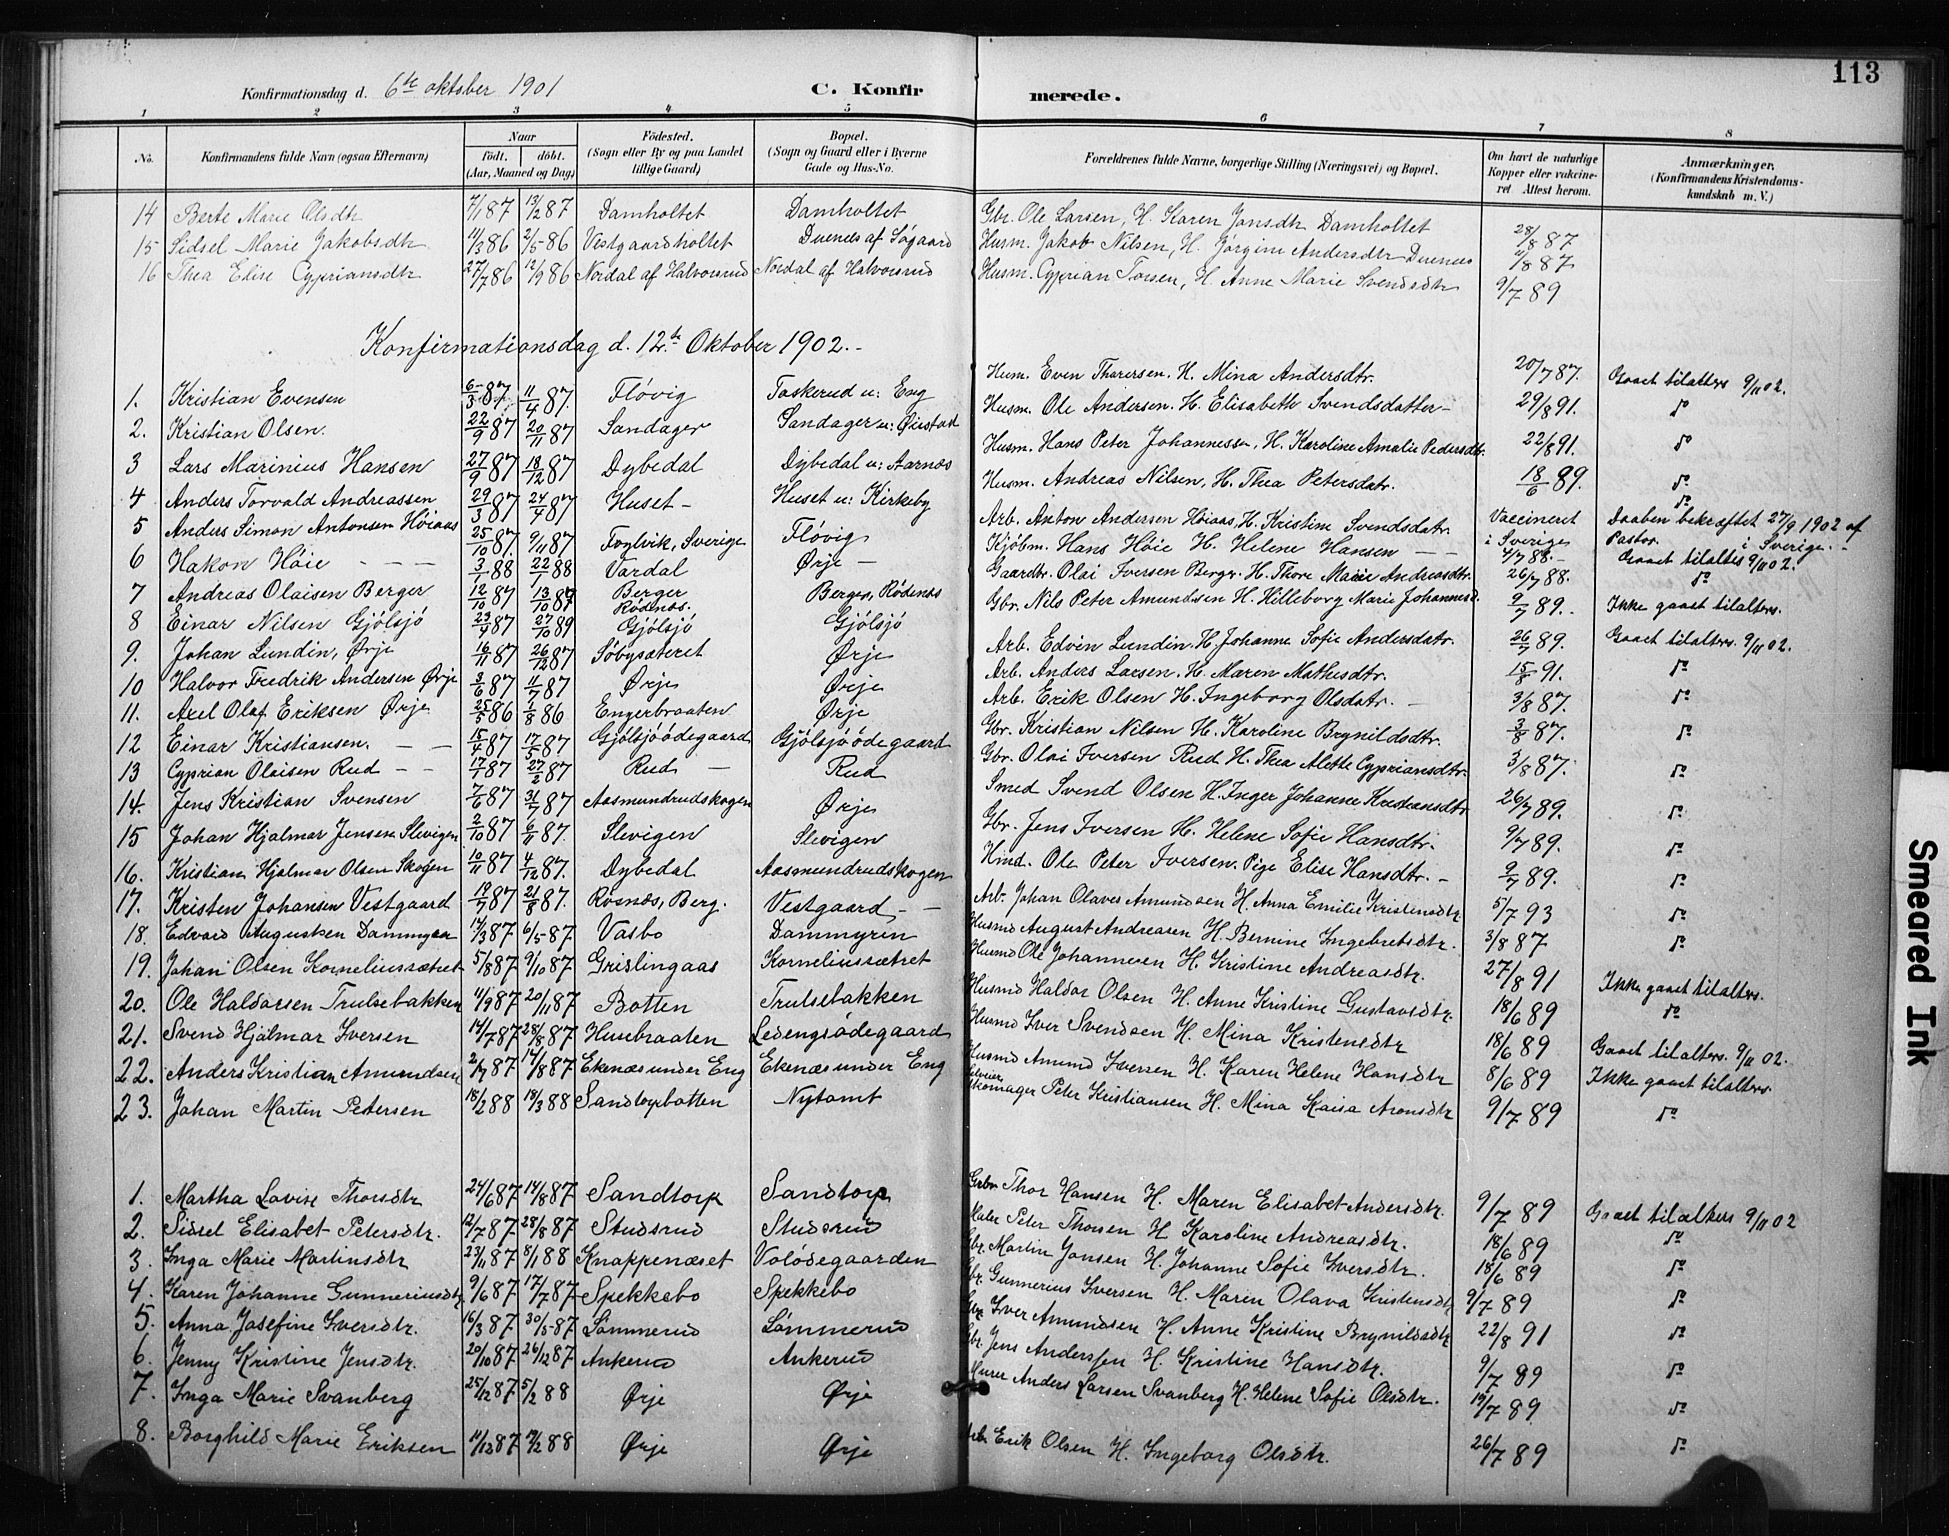 113
Konfirmationsdag d. 6te oktober 1901 C. Konfirmerede.
1 2 3 4 5 6 7 8
No. Konfirmandens fulde Navn (ogsaa Efternavn) Naar født. døbt. (Aar, Maaned og Dag) Fødested. (Sogn eller By og paa Landet tillige Gaard) Bopæl. (Sogn og Gaard eller i Byerne Gade og Hus-No. Forældrenes fulde Navne, borgerlige Stilling (Næringsvei) og Bopæl. Om havt de naturlige Kopper eller vaccineret Attest herom. Anmærkninger. (Konfirmandens Kristendomskundskab m. V.)
14 Berte Marie Olsdtr 7/1 87 13/2 87 Damholtet Damholtet Gbr. Ole Larsen, H. Karen Jonsdtr Damholtet 28/8 87
15 Sidsel Marie Jakobsdtr 11/3 86 2/5 86 Vestgaardholtet Duenæs af Søgaard Husm. Jakob Nilsen, H. Jørgine Andersdtr Duenæs 11/8 87
16 Thea Elise Cypriansdtr 27/7 86 12/9 86 Nordal af Halvorsrud Nordal af Halvorsrud Husm. Cyprian Torsen, H. Anne Marie Svendsdtr 9/7 89
Konfirmationsdag d. 12te Oktober 1902.-
1. Kristian Evensen 6/3 87 11/4 87. Fløvig Taskerud u: Eng Husm. Even Thorersen. H. Mina Andersdtr. 20/7 87. Gaaet tilalters 9/11 02.
2. Kristian Olsen. 22/9 87 20/11 87 Sandager Sandager u: Øiestad Husm. Ole Andersen. H. Elisabeth Svendsdatter- 29/8 91. do
3 Lars Marinius Hansen 27/9 87 18/12 87 Dybedal Dybedal u: Aarnæs Husm. Hans Peter Johannessen, H. Karoline Amalie Pedersdtr. 22/8 91. do
4 Anders Torvald Andreassen 29/3 87 24/4 87 Huset - Huset u: Kirkeby Husm. Andreas Nilsen, H. Thea Petersdatr. 18/6 89. do
5 Anders Simon Antonsen Høiaas 25/10 87. 9/11 87 Foglvik, Sverige Fløvig Arb. Anton Andersen Høiaas, H. Kristine Svendsdatr. Vaccineret i Sverige do Daaben bekræftet 27/9 1902 af Pastor. i Sverige.
6 Hakon Høie - - - 3/1 88 22/1 88 Vardal Ørje - Kjøbm. Hans Høie H. Helene Hansen - - 4/7 88.- Gaaet tilalters 9/11 02.
7 Andreas Olaisen Berger 12/10 87 13/10 87 Berger Rødenæs. Berger, Rødenæs Gaardbr. Olai Iversen Berger. H. Thore Marie Andreasdtr. 26/7 88. do
8 Einar Nilsen Gjølsjø 23/4 87 27/10 89 Gjølsjø Gjølsjø Gbr. Nils Peter Amundsen H. Hilleborg Marie Johannesd. 9/7 89.- Ikke gaaet tilalters.
9. Johan Lundin, Ørje 16/11 87 26/12 87 Søbysæteret Ørje Arb. Edvin Lundin. H. Johanne Sofie Andersdatr. 26/7 89. Gaaet tilalters. 9/11 02.
10 Halvor Fredrik Andersen Ørje 3/6 87 11/7 87 Ørje Ørje Arb. Anders Larsen. H. Maren Mathisdtr. 15/8 91. do
11. Axel Olaf Eriksen Ørje 25/5 86 1/8 86 Engerbraaten Ørje Arb. Erik Olsen H. Ingeborg Olsdatr. - 3/8 87. do
12 Einar Kristiansen. - - 15/4 87 17/5 87 Gjølsjøødegaard Gjølsjøødegaard Gbr. Kristian Nilsen H. Karoline Brynildsdtr. 3/8 87. do
13 Cyprian Olaisen Rud - - 17/1 87 27/2 87 Rud - Rud Gbr. Olai Iversen Rud H. Thea Alette Cypriansdtr. 3/8 87. do
14. Jens Kristian Svensen 7/6 87 31/7 87 Aasmundrudskogen Ørje Smed Svend Olsen H. Inger Johanne Kristiansdtr 26/7 89. do
15 Johan Hjalmar Jensen Slevigen 2/10 87 6/11 87. Slevigen Slevigen Gbr. Jens Iversen H. Helene Sofie Hansdtr. 9/7 89. do
16. Kristian Hjalmar Olsen Skogen 10/11 87 4/12 87. Dybedal Aasmundrudskogen Hind. Ole Peter Iversen. Pige Elise Hansdtr. - 9/7 89. do
17. Kristen Johansen Vestgaard 12/7 87 21/8 87. Røsnæs, Berg. Vestgaard - - Arb. Johan Olaves Amundsen H. Anna Emilie Kristensdtr 5/7 93 do
18. Edvard Augustsen Dammyren 14/3 87 6/5 87 Vasbo Dammyrin Husmd August Andreasen H. Bernine Ingebretsdtr. 3/8 87 do
19. Johan Olsen Korneliussætret 5/8 87 9/10 87 Grislingaas Korneliussætret Husmd Ole Johannesen H. Kristine Andreasdtr. 27/8 91 Ikke gaaet tilalters.
20. Ole Haldorsen Trulsebakken 4/9 87 20/11 87 Botten Trulsebakken Husmd Haldor Olsen H. Anne Kristine Gustavsdtr. 18/6 89 do
21. Svend Hjalmar Iversen 14/7 87 28/8 87 Husebraaten Ledengsødegaard Husmd Iver Svendsen H. Mina Kristensdtr 18/6 89 Gaaet tilalters. 9/11 02.
22. Anders Kristian Amundsen 2/7 87 14/8 87 Ekenæs under Eng Ekenæs under Eng Husmd Amund Iversen H. Karen Helene Hansdtr 8/6 89 Ikke gaaet tilalters.
23. Johan Martin Petersen 18/2 88 18/3 88 Sandtorpbotten Nytomt Skomager Peter Kristiansen H. Mina Kaisa Aronsdtr 9/7 89 do
1. Martha Lovise Thorsdtr 24/6 87 14/8 87 Sandtorp Sandtorp Grbr Thor Hansen H. Maren Elisabet Andersdtr. 9/7 89 Gaaet tilalters 9/11 02
2. Sidsel Elisabet Petersdtr. 12/7 87. 28/8 87 Studsrud Studsrud Maler Peter Thorsen H Karoline Andreasdtr. 18/6 89 do
3. Inga Marie Martinsdtr 23/11 87 8/1 88 Knappenæset Volødegaarden Gbr. Martin Jonsen H. Johanne Sofie Iversdtr. 18/6 89 do
4. Karen Johanne Gunneriusdtr. 9/6 87 17/7 87 Spekkebo Spekkebo Gbr. Gunnerius Iversen H. Maren Olava Kristensdtr 9/7 89 do
5. Anna Josefine Iversdtr. 16/3 87. 30/5 87 Lømmerud Lømmerud Gbr. Iver Amundsen H. Anne Kristine Brynildsdtr 22/8 91 do
6. Jenny Kristine Jensdtr. 20/10 87 26/12 87 Ankerud Ankerud Gbr. Jens Anderssen H. Kristine Hansdtr. 9/7 89 do
7. Inga Marie Svanberg 25/12 87. 5/2 88 Ørje Ørje Murer Anders Larsen Svanberg H. Helene Sofie Olsdtr. 19/7 89 do
8. Borghild Marie Eriksen 11/12 87 12/2 88 Ørje Ørje Arb. Erik Olsen H. Ingeborg Olsdtr. 26/7 89 do
Smeared Ink